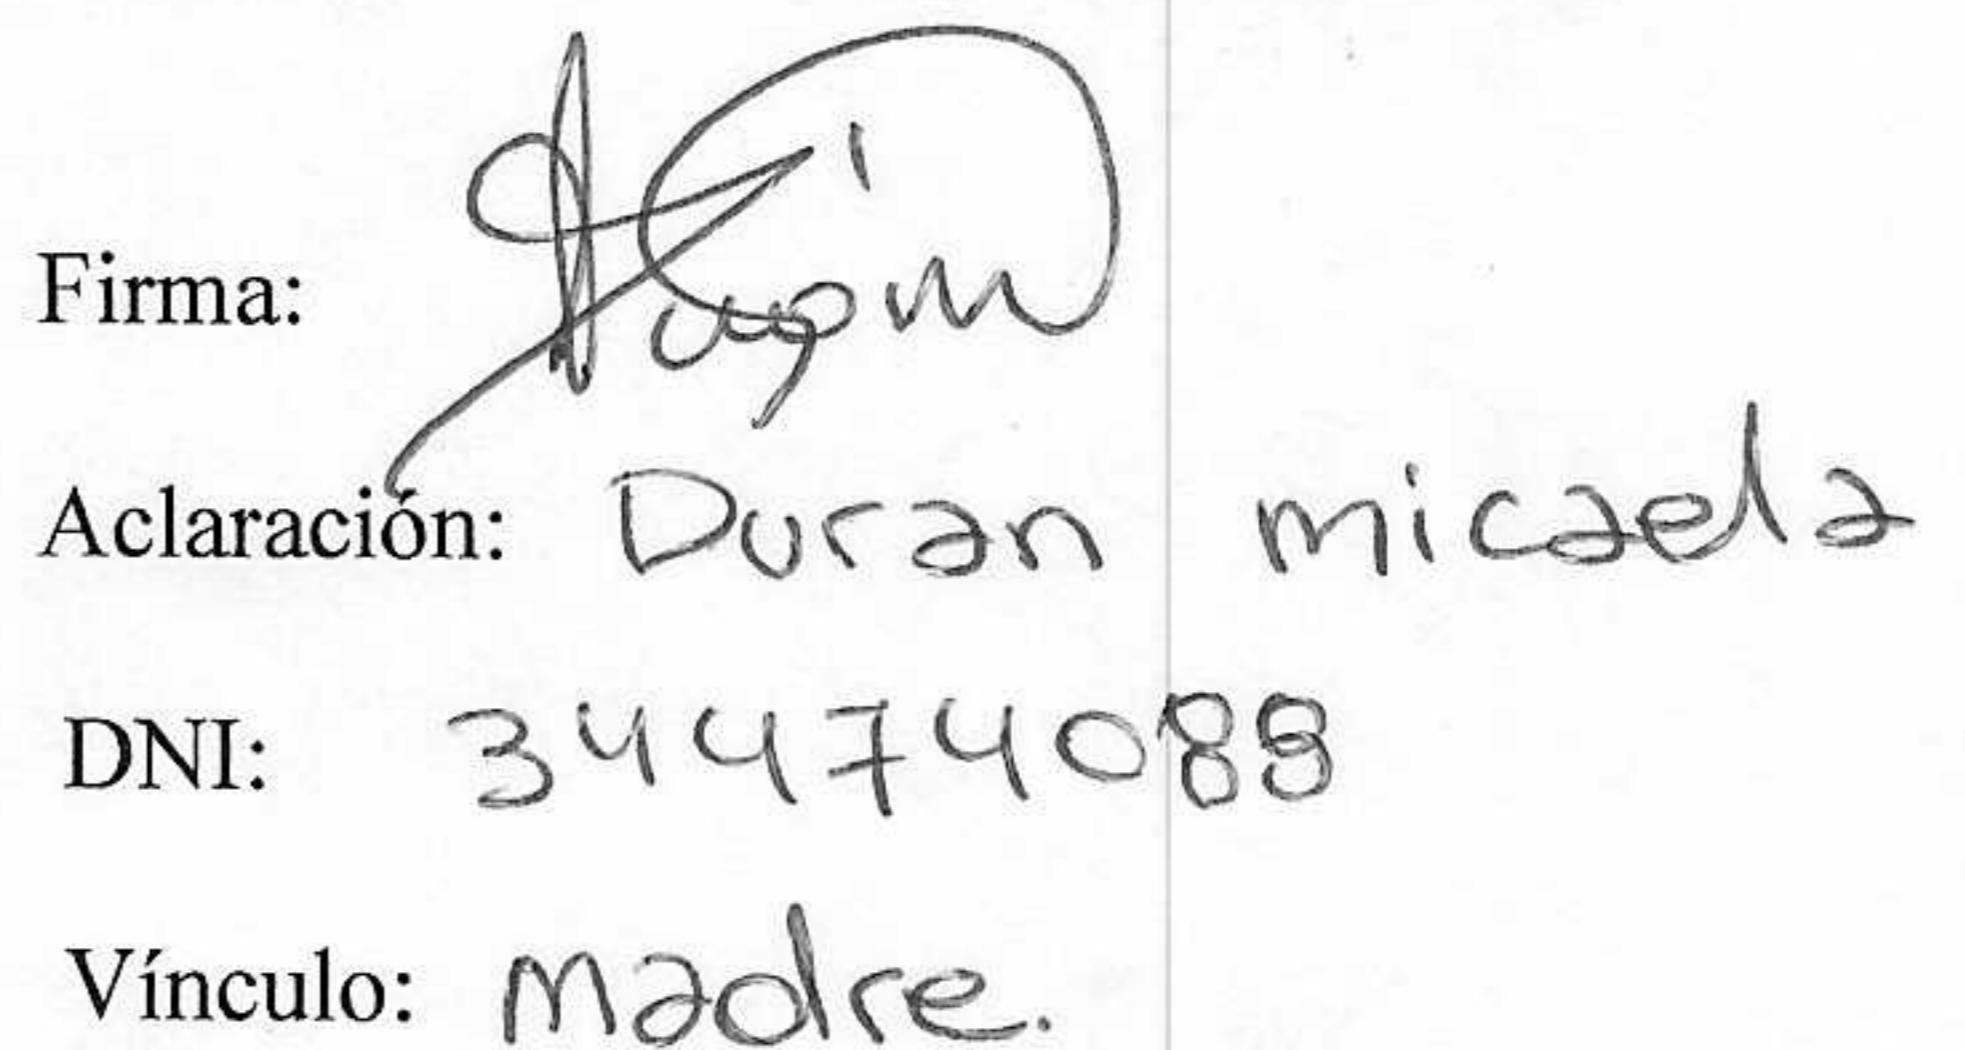 Firma:
Aclaración: Duran micaela
DNI: 34474089
Vínculo: Madre.